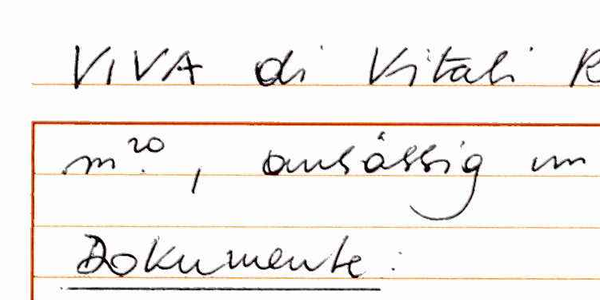 VIVA di Vitali R
m²⁰, ansässig im
Dokumente: